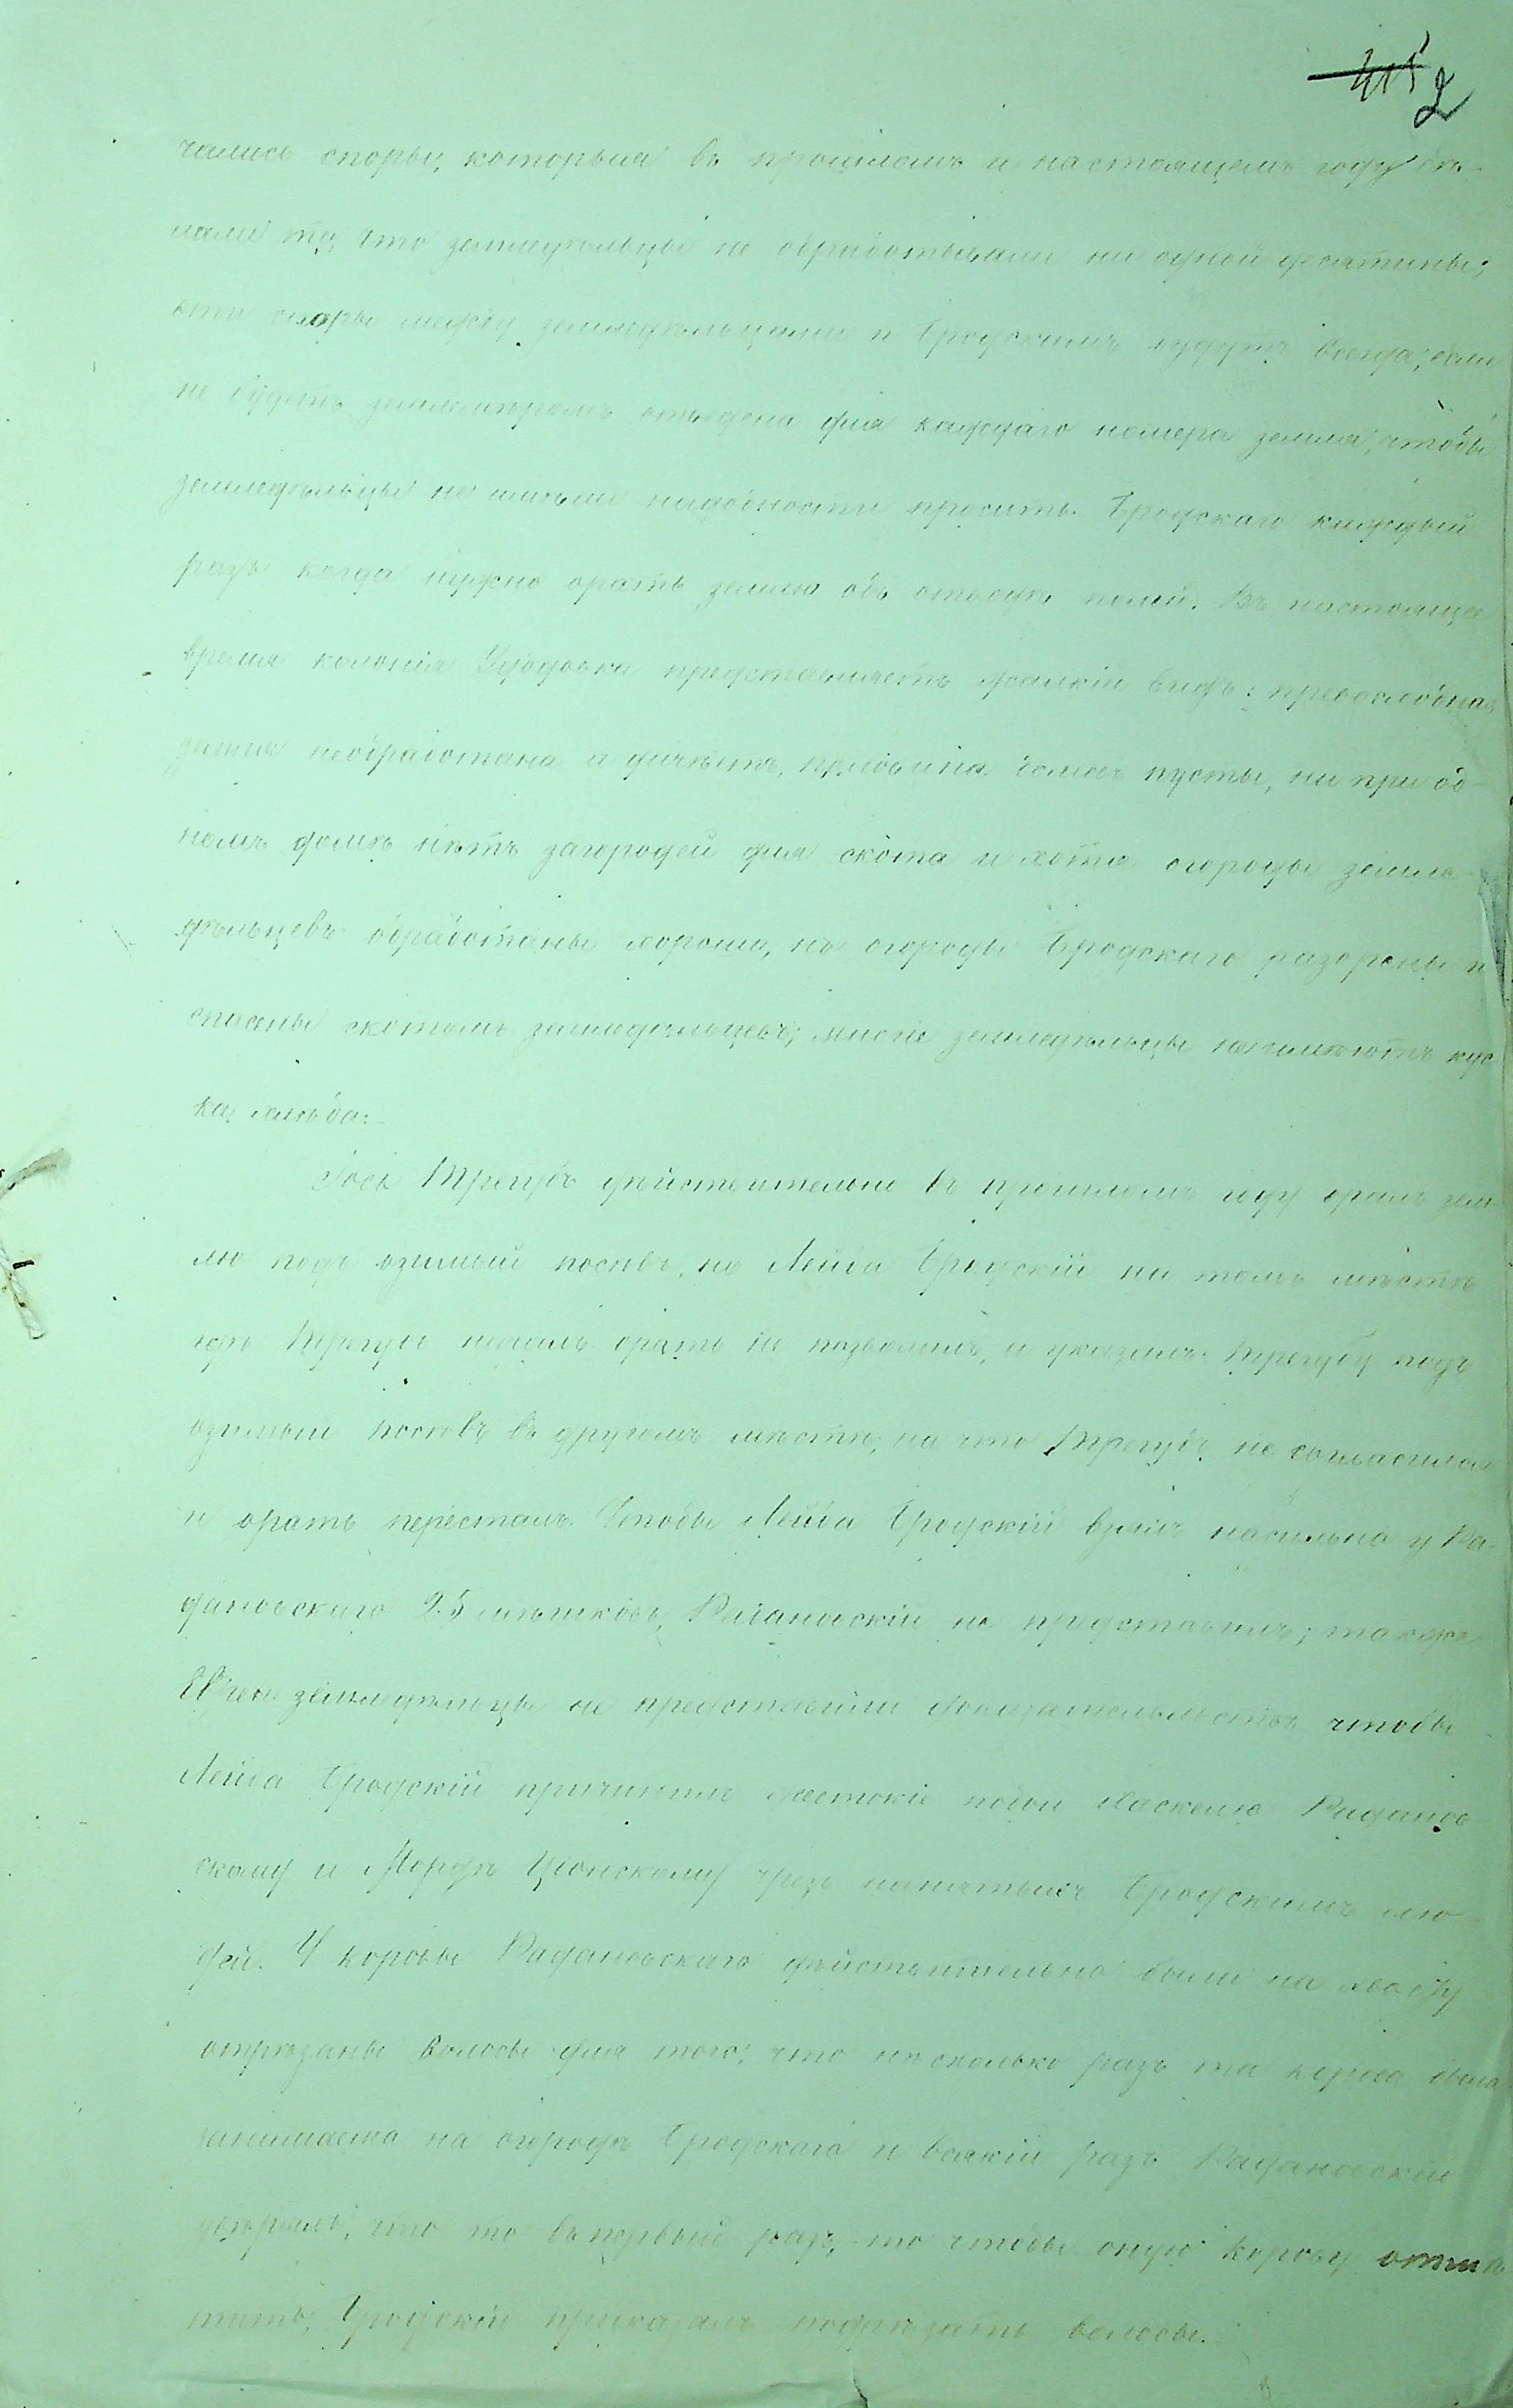 415 2
чались споры, которыя въ прошломъ и настоящемъ году сдѣ-
лали то, что земледѣльцы не обработывали ни одной десятины;
эти споры между земледѣльцами и Бродскимъ будутъ всегда, если
не будетъ землемѣромъ отведена для каждаго номера земля, чтобы
земледѣльцы не имѣли надобности просить Бродскаго каждый
разъ когда нужно орать землю объ отводѣ полей. Въ настоящее
время колонія представляетъ жалкій видъ: превосходная
земля необработана и дичѣетъ, половина домовъ пусты, ни при од-
номъ домѣ нѣтъ загородей для скота и хотя огороды земле-
дѣльцевъ обработаны хорошо, но огороды Бродскаго разорены и
спасены скотомъ земледѣльцевъ; многіе земледѣльцы не имѣютъ кус
ка хлѣба.
Іось Трегубъ дѣйствительно въ прошломъ году оралъ зем
лю подъ озимый посѣвъ, но Лейба Бродскій на томъ мѣстѣ
гдѣ Трегубъ началъ орать не позволилъ, и указалъ Трегубу подъ
озимый посѣвъ въ другомъ мѣстѣ, на что Трегубъ не согласился
и орать пересталъ. Чтобы Лейба Бродскій взялъ насильно у Ра-
дановскаго 25 мѣшковъ, Радановскій не представилъ; также
земледѣльцы не представили доказательствъ чтобы
Лейба Бродскій причинилъ жестокіе побои Хаскелю Раданов
скому и Мордѣ Ционскому чрезъ нанятыхъ Бродскимъ лю
дей. У коровы Радановскаго дѣйствительно были на хвосту
отрѣзаны волосы для того, что нѣсколько разъ та корова была
занимаема на огородѣ Бродскаго и всякій разъ Радановскій
увѣрялъ, что то въ первый разъ, то чтобы оную корову отмѣ
тить, Бродскій приказалъ подрѣзать волосы.